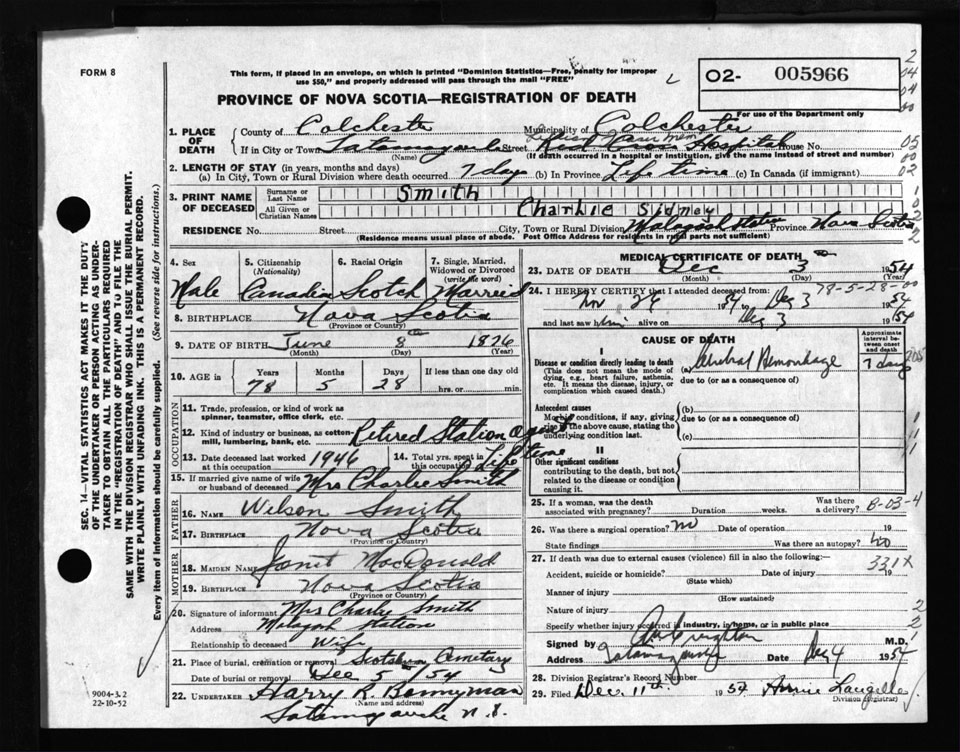 FORM 8
This form, if placed in an envelope, on which is printed "Dominion Statistics—Free, penalty for improper
use $50," and properly addressed will pass through the mail "FREE"
02- 005966
For use of the Department only
PROVINCE OF NOVA SCOTIA—REGISTRATION OF DEATH
1. PLACE OF DEATH
County of Colchester Municipality of Colchester
If in City or Town Tatamagouche Street Red Cross Hospital House No.
(Name) (If death occurred in a hospital or institution, give the name instead of street and number)
2. LENGTH OF STAY (in years, months and days)
(a) In City, Town or Rural Division where death occurred 7 days (b) In Province Life time (c) In Canada (if immigrant)
3. PRINT NAME OF DECEASED
Surname or Last Name Smith
All Given or Christian Names Charlie Sidney
RESIDENCE No. Street City, Town or Rural Division Station Province Nova Scotia
(Residence means usual place of abode. Post Office Address for residents in rural parts not sufficient)
4. Sex Male
5. Citizenship (Nationality) Canadian
6. Racial Origin Scotch
7. Single, Married, Widowed or Divorced (write the word) Married
8. BIRTHPLACE Nova Scotia
(Province or Country)
9. DATE OF BIRTH June 8th 1876
(Month) (Day) (Year)
10. AGE in Years 78 Months 5 Days 28 If less than one day old hrs. or min.
OCCUPATION
11. Trade, profession, or kind of work as spinner, teamster, office clerk, etc.
12. Kind of industry or business, as cotton-mill, lumbering, bank, etc. Retired Station Agent
13. Date deceased last worked at this occupation 1946
14. Total yrs. spent in this occupation Life time
15. If married give name of wife or husband of deceased Mrs Charlie Smith
FATHER
16. NAME Wilson Smith
17. BIRTHPLACE Nova Scotia
(Province or Country)
MOTHER
18. MAIDEN NAME Janet MacDonald
19. BIRTHPLACE Nova Scotia
(Province or Country)
20. Signature of informant Mrs Charlie Smith
Address Station
Relationship to deceased Wife
21. Place of burial, cremation or removal Cemetary
Date of burial or removal Dec 5/54
22. UNDERTAKER Harry R. Bonnyman
(Name and address)
Tatamagouche N.S.
MEDICAL CERTIFICATE OF DEATH
23. DATE OF DEATH Dec 3 1954
(Year)
78-5-28-00
24. I HEREBY CERTIFY that I attended deceased from:
Nov 26 1954 Dec 3 1954
and last saw him alive on Dec 3 1954
CAUSE OF DEATH
Approximate interval between onset and death
I
Disease or condition directly leading to death
(This does not mean the mode of dying, e.g., heart failure, asthenia, etc. It means the disease, injury, or complication which caused death.)
(a) Cerebral Hemorrhage 7 days
due to (or as a consequence of)
Antecedent causes
Morbid conditions, if any, giving rise to the above cause, stating the underlying condition last.
(b)
due to (or as a consequence of)
(c)
II
Other significant conditions
contributing to the death, but not related to the disease or condition causing it.
25. If a woman, was the death associated with pregnancy? Duration weeks. Was there a delivery?
B-03-4
26. Was there a surgical operation? no Date of operation 19
State findings Was there an autopsy? no
27. If death was due to external causes (violence) fill in also the following:
331X
Accident, suicide or homicide? Date of injury 19
(State which)
Manner of injury
(How sustained)
Nature of injury
Specify whether injury occurred in industry, in home, or in public place
Signed by M.D.
Address Tatamagouche Date Dec 4 1954
28. Division Registrar's Record Number
29. Filed Dec. 11th 1954 Annie Langille
Division (Registrar)
SEC. 14—VITAL STATISTICS ACT MAKES IT THE DUTY
OF THE UNDERTAKER OR PERSON ACTING AS UNDER-
TAKER TO OBTAIN ALL THE PARTICULARS REQUIRED
IN THE "REGISTRATION OF DEATH" AND TO FILE THE
SAME WITH THE DIVISION REGISTRAR WHO SHALL ISSUE THE BURIAL PERMIT.
WRITE PLAINLY WITH UNFADING INK. THIS IS A PERMANENT RECORD.
Every item of information should be carefully supplied. (See reverse side for instructions.)
9004-3.2
22-10-52